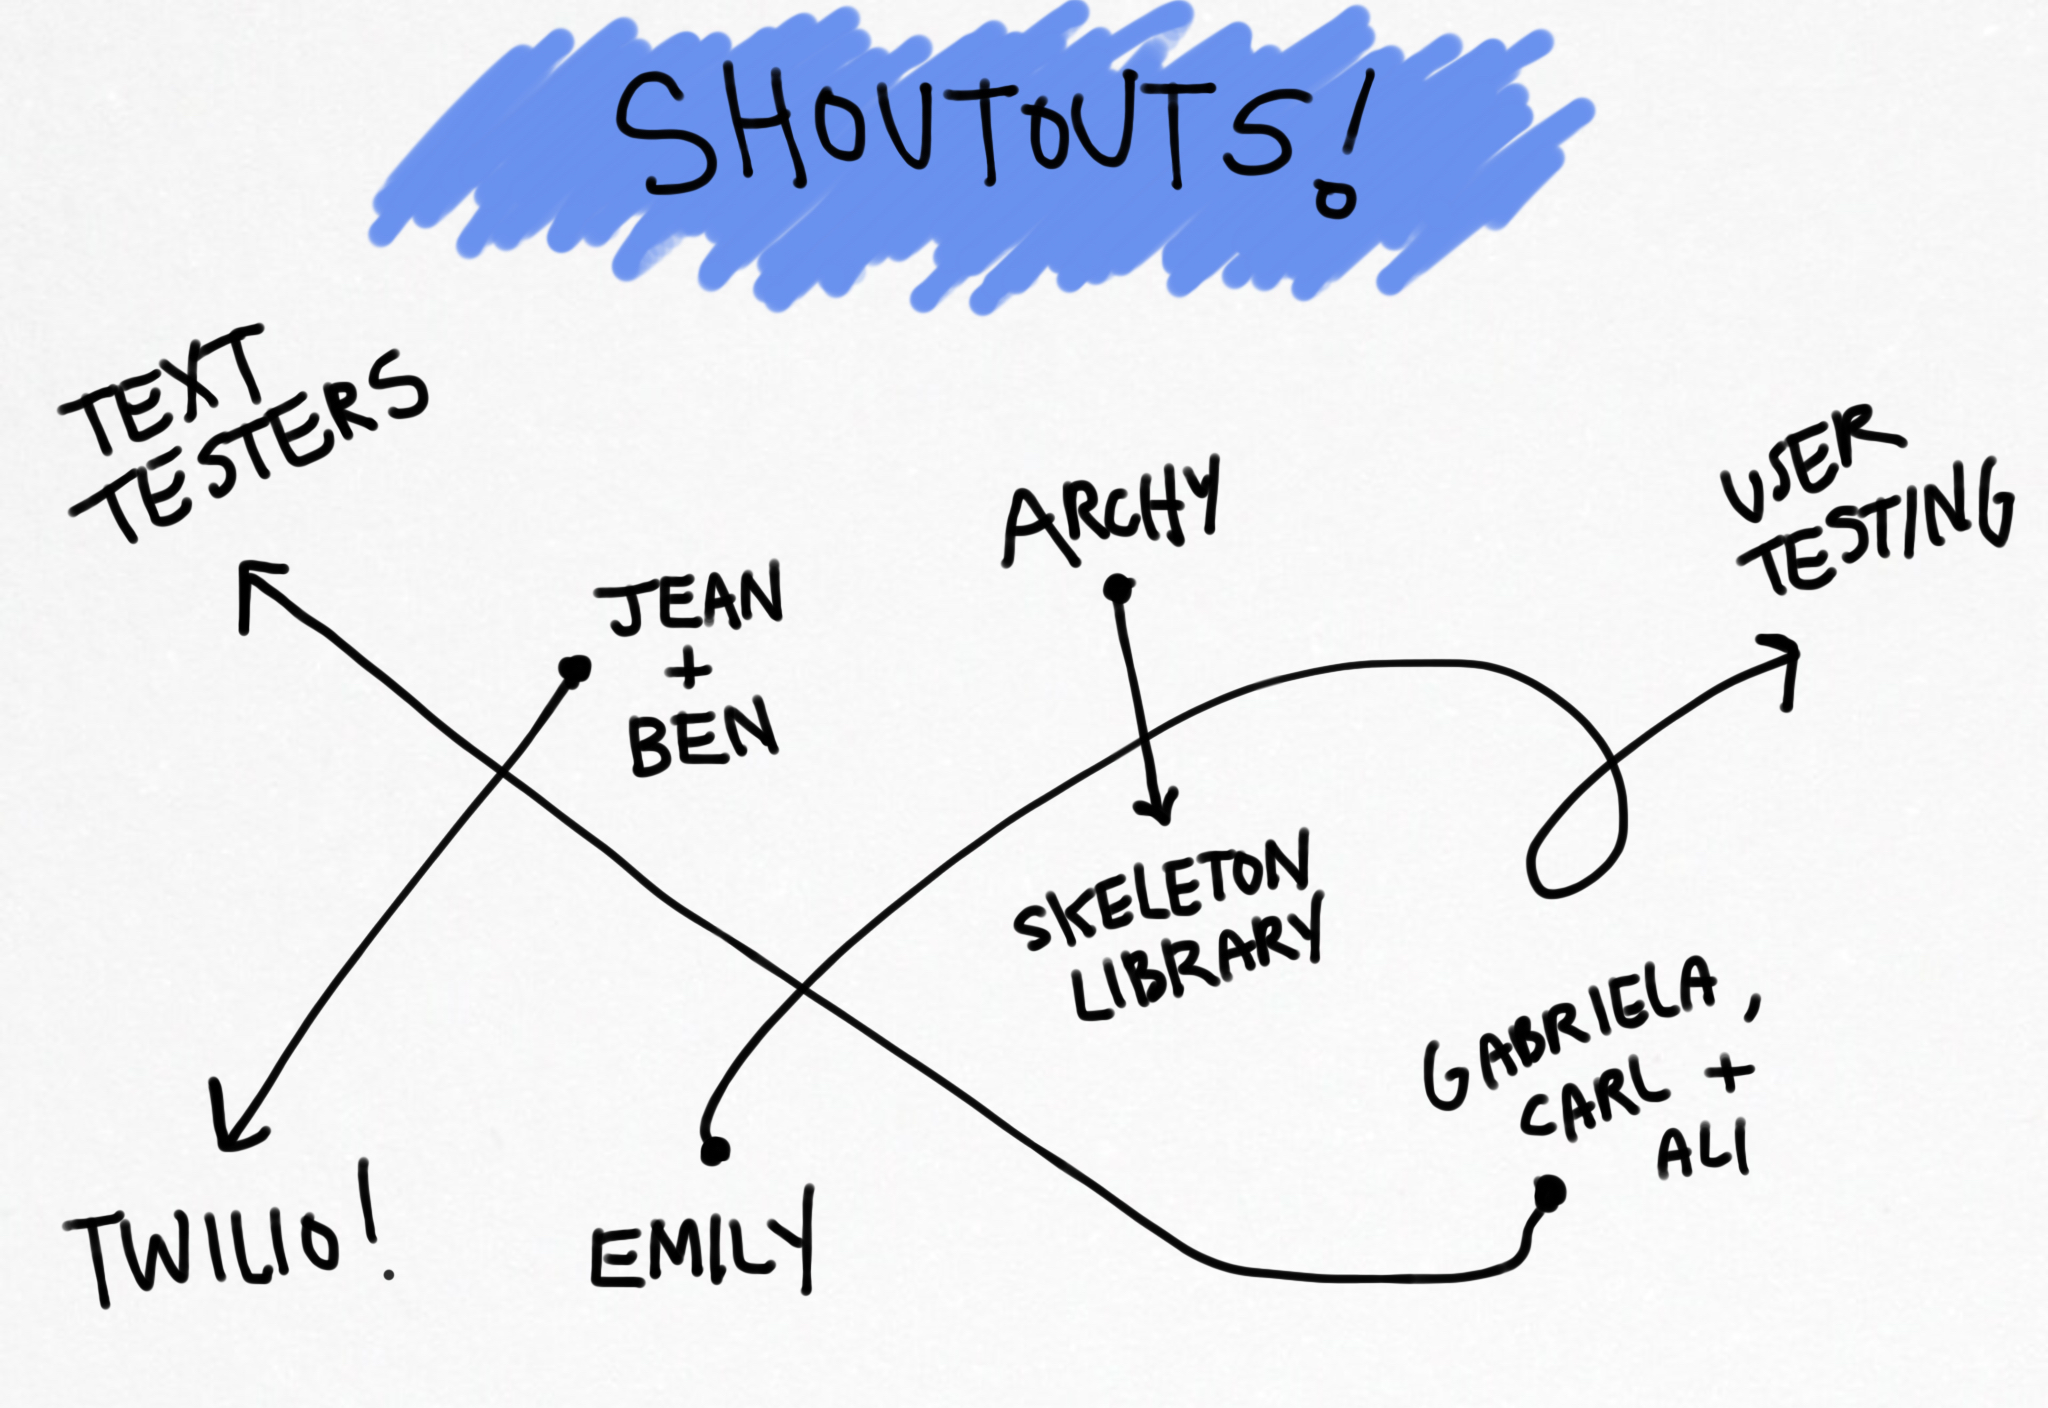 SHOUTOUTS!
TEXT
TESTERS
JEAN
+
BEN
ARCHY
USER
TESTING
SKELETON
LIBRARY
GABRIELA,
CARL +
ALI
TWILIO!
EMILY